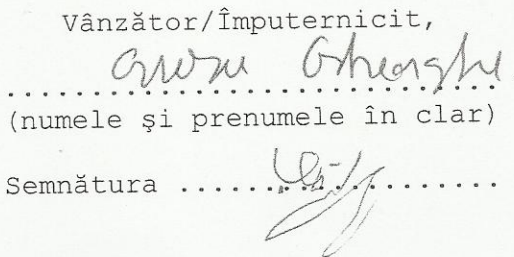 Vânzător/Împuternicit,
Gheorghe
(numele şi prenumele în clar)
Semnătura ....................